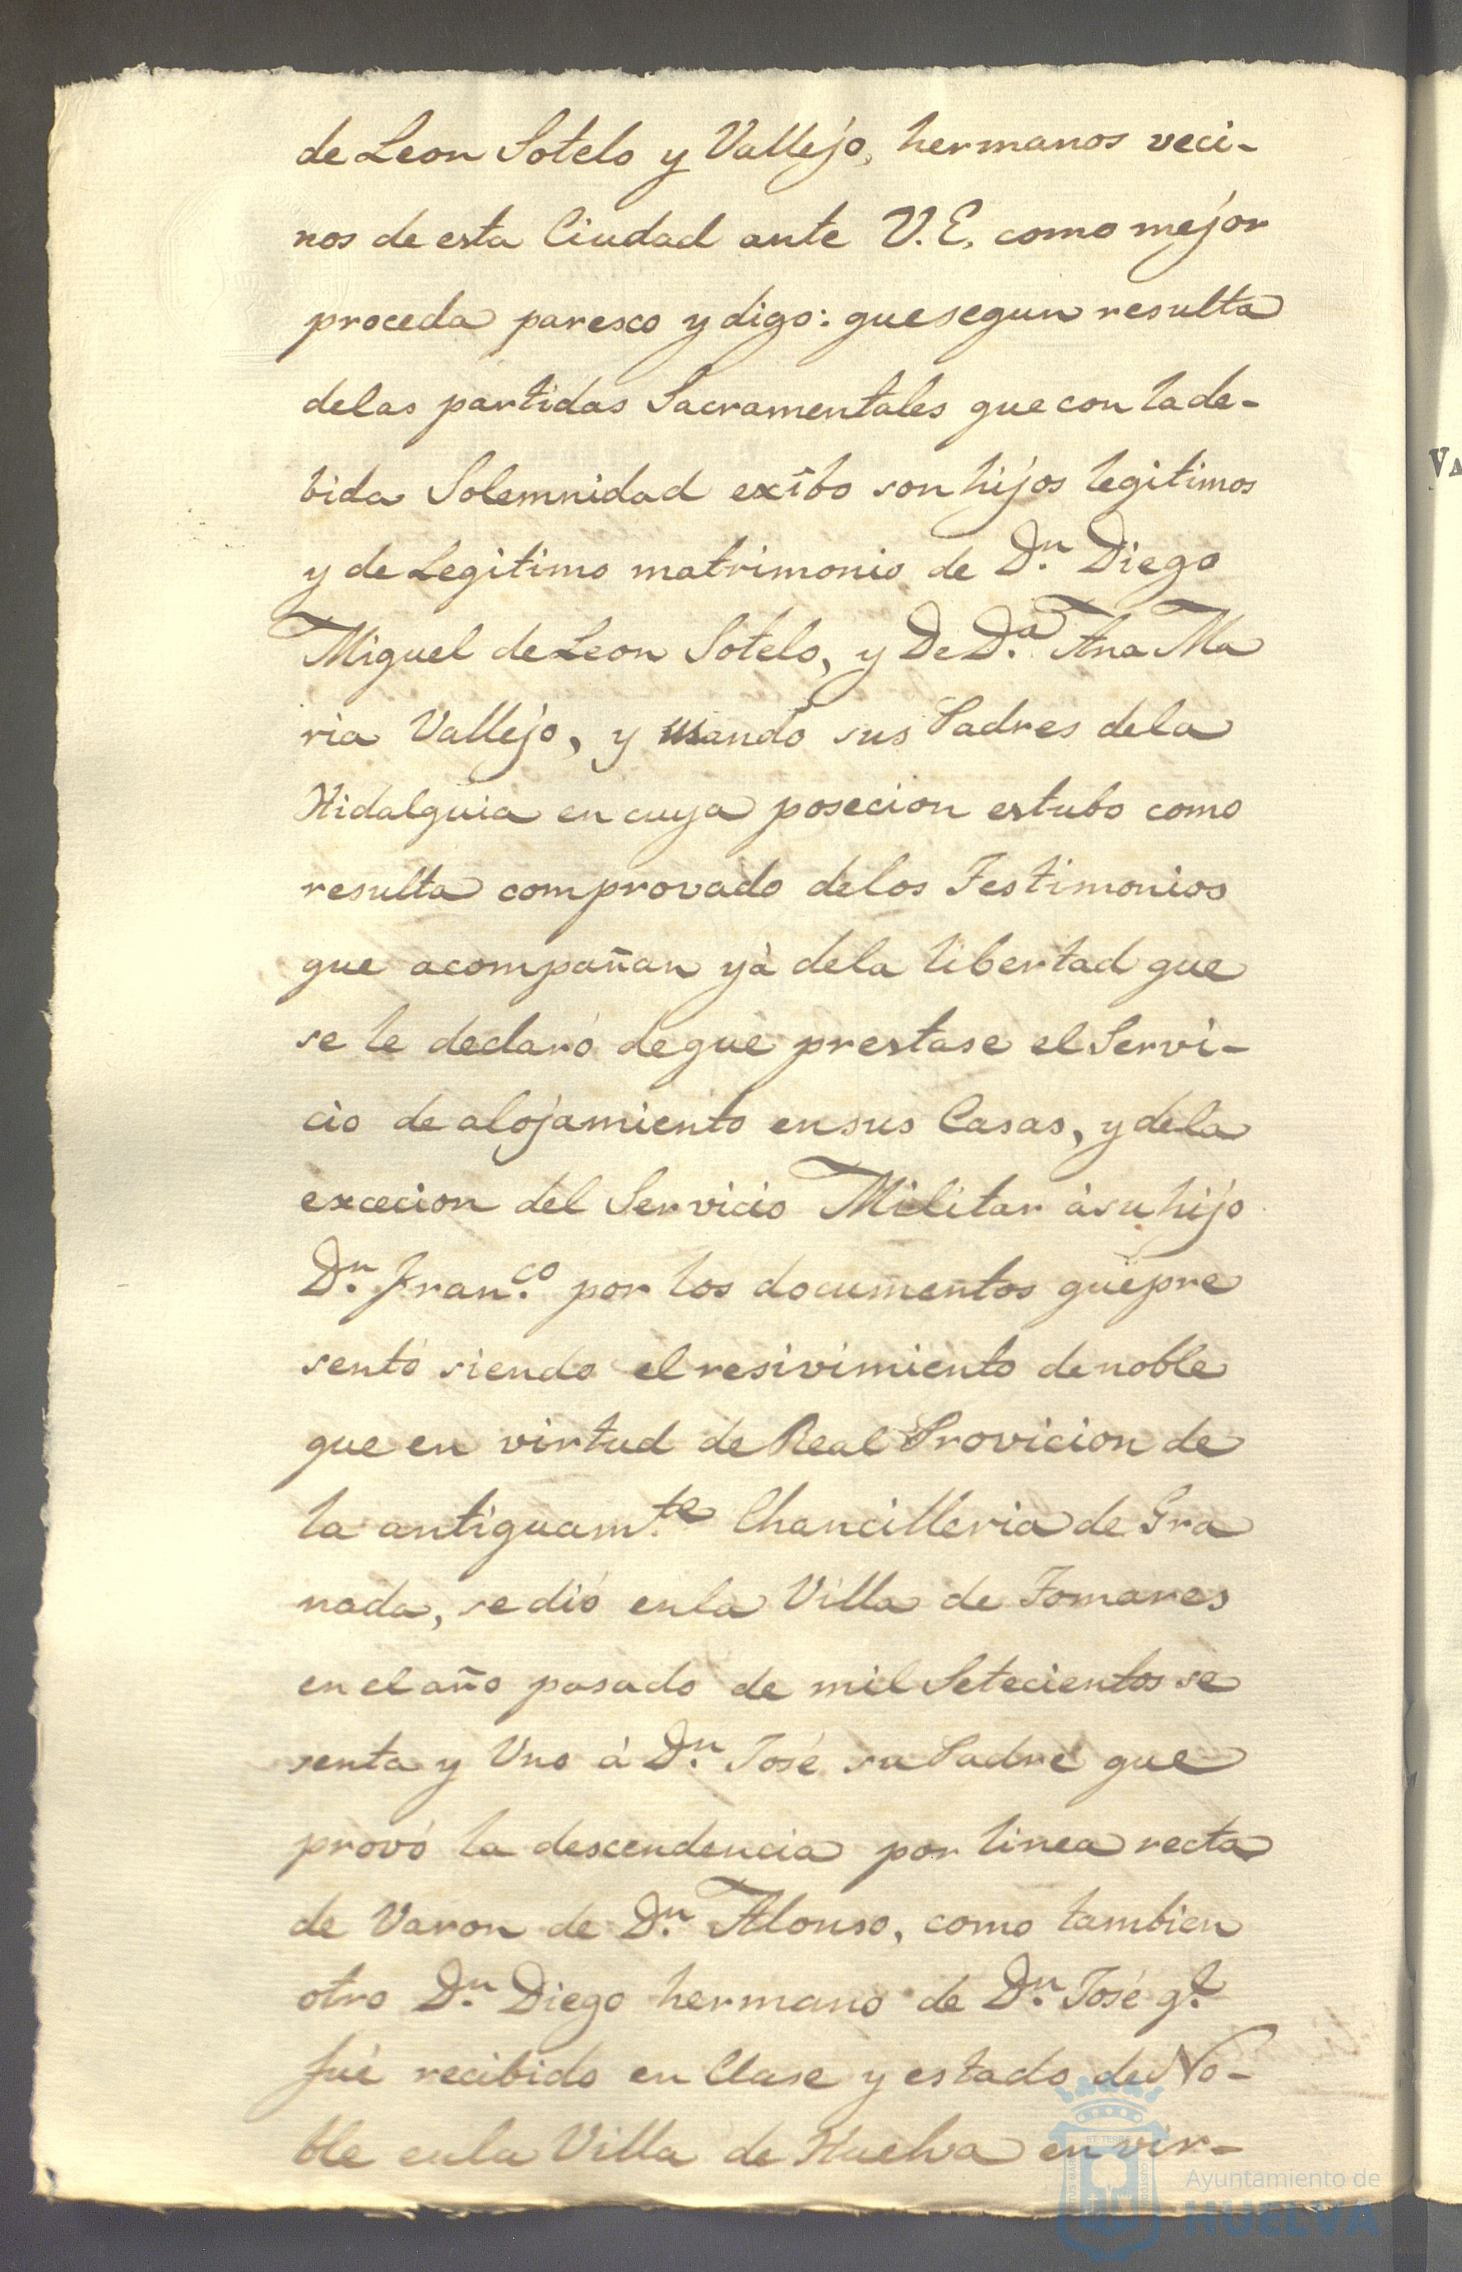 de Leon Sotelo y Vallejo, hermanos veci-
nos de esta Ciudad ante V.E. como mejor
proceda paresco y digo: que segun resulta
delas partidas Sacramentales que con lade-
vida Solemnidad exibo son hijos legitimos
y de Legitimo matrimonio de Dn. Diego
Miguel de Leon Sotelo, y De Da. Ana Ma
ria Vallejo, y usando sus Padres dela
Hidalguia en cuya posecion estubo como
resulta comprovado delos Testimonios
que acompañan yà dela libertad que
se le declaró deque prestase el Servi-
cio de alojamiento en sus Casas, y dela
excecion del Servicio Militar àsu hijo
Dn. Fran.co por los documentos quepre
sentó siendo el resivimiento de noble
que en virtud de Real Provicion de
la antiguam.te Chancilleria de Gra
nada, se dió enla Villa de Tomares
en el año pasado de mil Setecientos se
senta y Uno à Dn. José su Padre que
provó la descendencia por linea recta
de Varon de Dn. Alonso, como tambien
otro Dn. Diego hermano de Dn. José q.e
fué recibido en Clase y estado de No-
ble enla Villa de Huelva en vir-
VA
Ayuntamiento de
HUELVA